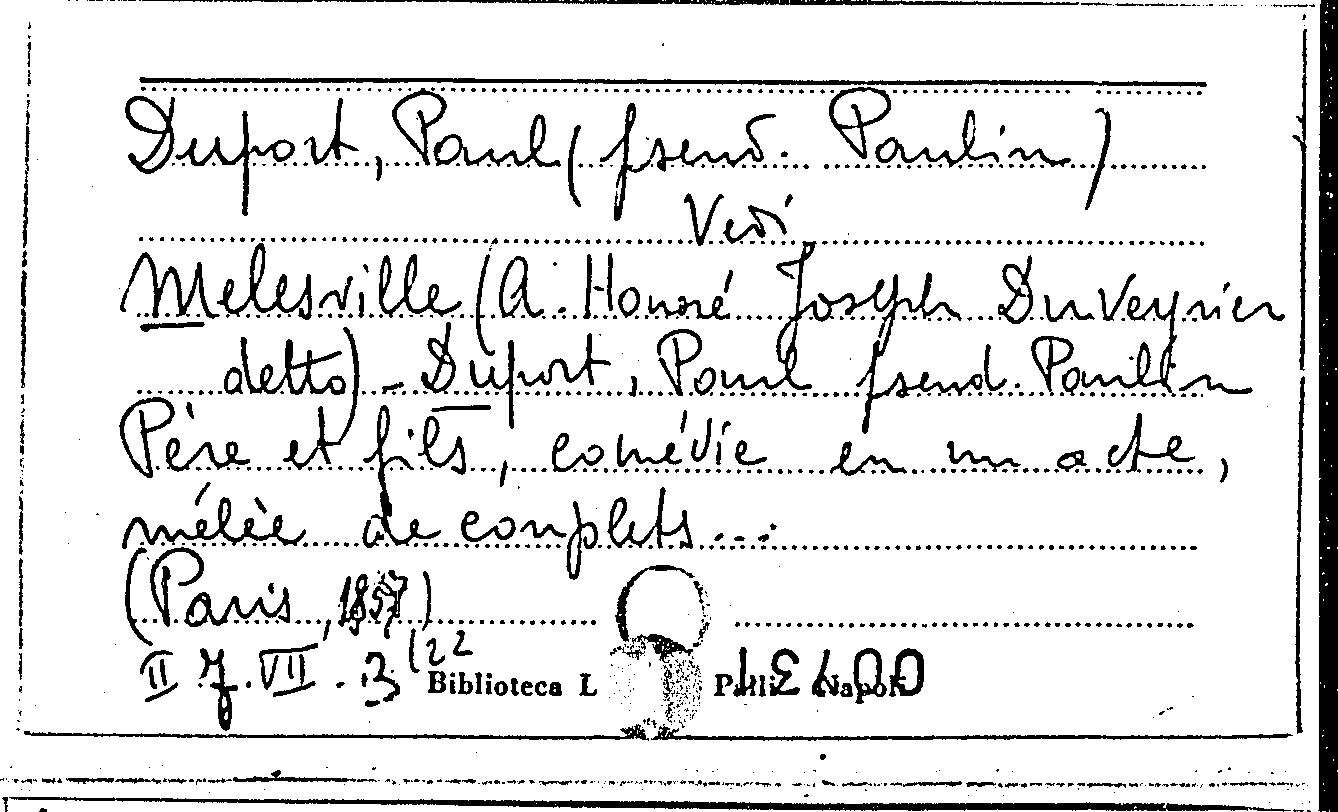 Duport, Paul (pseud. Paulin)
Vedi
Melesville (A. Honoré Joseph Duveyrier
detto) - Duport, Paul pseud. Paulin
Père et fils, comédie en un acte,
mélée de couplets...
(Paris, 1857)
II Z. VII. 3/22
Biblioteca L Palli Napoli